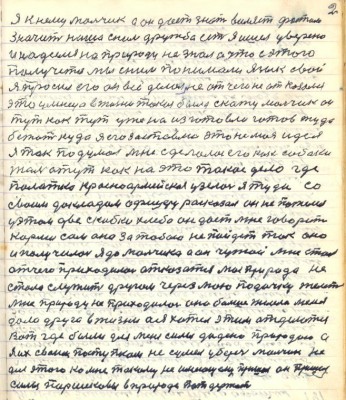 2
я к нему молчик а он дает знат виляет фостом
значит наша с ним дружба ест я шел уверено
и надеялся на природу не знал а что с этого
получится мы с ним понимали язык свой
я просил его он всё делал не от чего не отказался
это умница в жизни такая была скажу молчик он
тут как тут уже на изготовки готов туда
бежат куда я его заставлю это не моя идея
я так подумал мне сделалос его как собаки
жал тут как на это такое дело где
палатка красноармейская узелок я туда со
своим докладом офицеру расказал он не пожалел
у этом две скибки хлеба он дает мне говорит
корми сам она за тобою не пойдет так оно
и получилос я до молчика а он чужой мне стал
от чего приходилос отказатся моя природа не
стала служит другом через мою подачку
мне природу не приходилос она больше жила меня
дала друга в жизни а я хотел этим
вот где были для меня силы дадено природою а
я их своим поступком не сумел уберег молчик не
для этого ко мне такому не имеющему пришел он принес
силы в природе